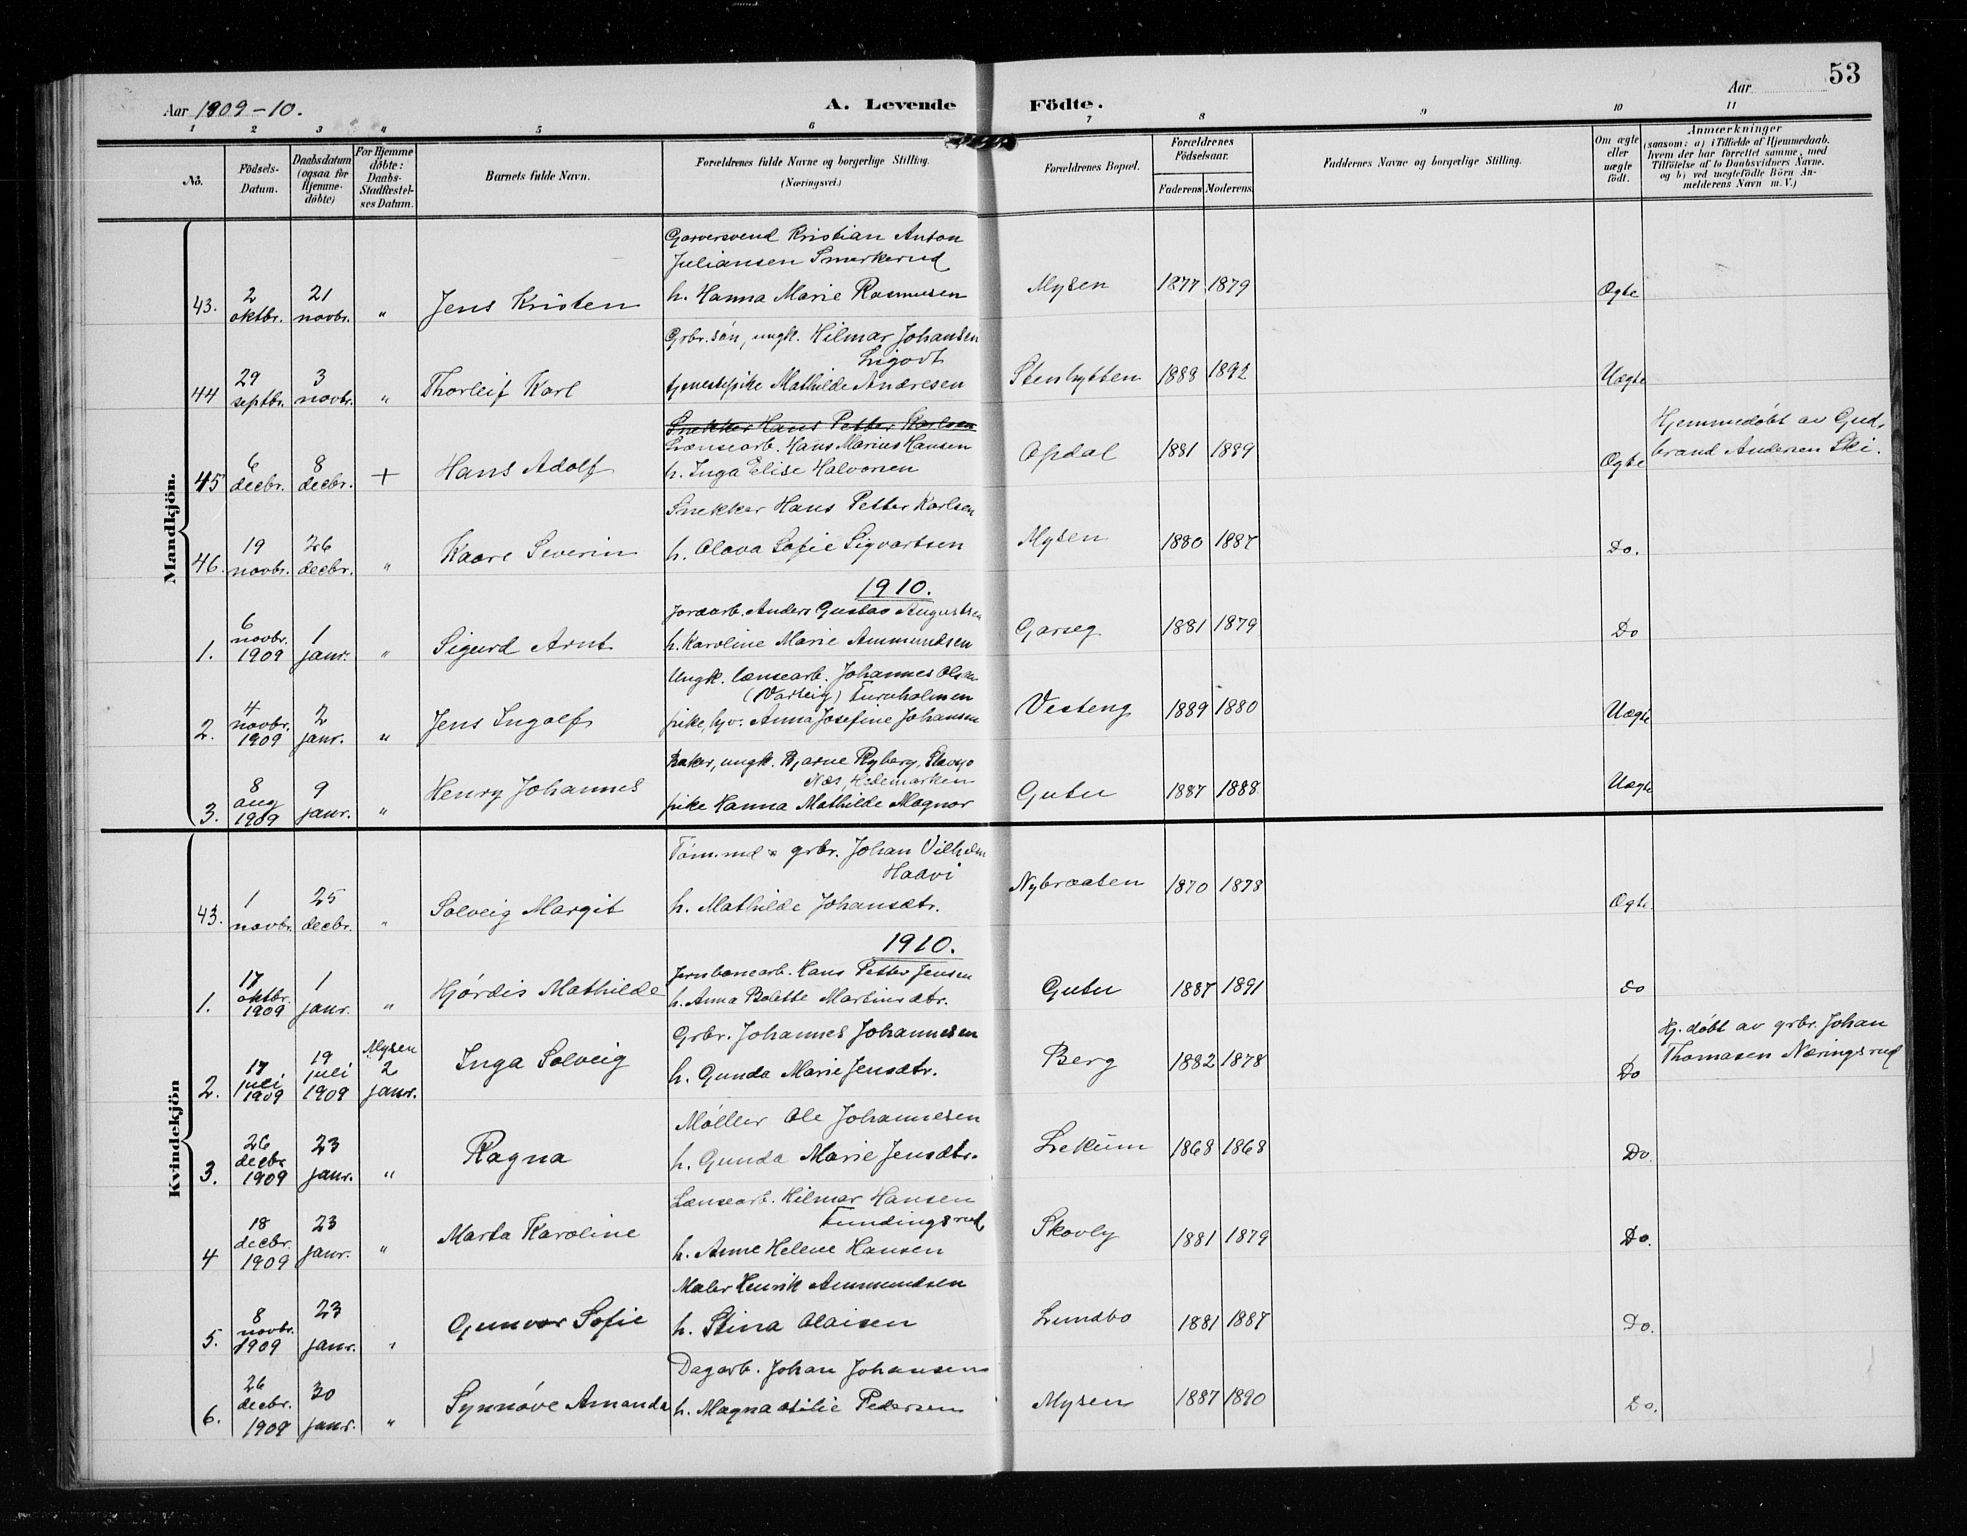 53
Aar 1909-10. A. Levende Födte. Aar
1 2 3 4 5 6 7 8 9 10 11
No. Födsels-Datum. Daabsdatum (ogsaa for Hjemme-döbte) For Hjemme döbte: Daabs-Stadfæstelses Datum. Barnets fulde Navn. Forældrenes fulde Navne og borgerlige Stilling. (Næringsvei.) Forældrenes Bopæl. Forældrenes Födselsaar. Faderens Moderens Faddernes Navne og borgerlige Stilling. Om ægte eller uægte födt. Anmærkninger (saasom: a) i Tilfælde af Hjemmedaab, hvem der har forrettet samme, med Tilföielse af to Daabsvidners Navne, og b) ved uægtefödte Börn Anmelderens Navn m. V.)
Mandkjön.
Garversvend Kristian Anton
Juliansen Smerkerud
43. 2 oktbr. 21 novbr. " Jens Kristen h. Hanna Marie Rasmusen Mysen 1877 1879 Ægte
Grbr. søn, ungk. Hilmar Johansen
Ligodt
44 29 septbr. 3 novbr. " Thorleif Karl tjenestepike Mathilde Andresen Stenhytten 1888 1892 Uægte
Snekker Hans Petter Karlsen
Lænsearb. Hans Marius Hansen
45 6 decbr. 8 decbr. + Hans Adolf h. Inga Elise Halvorsen Opdal 1881 1889 Ægte Hjemmedøbt av Gudbrand Andersen Ski.
Snekker Hans Petter Karlsen
46. 19 novbr. 26 decbr. " Kaare Severin h. Olava Sofie Sigvartsen Mysen 1880 1887 Do.
1910.
Jordarb. Anders Gustav Augustsen
1. 6 novbr. 1909 1 janr. " Sigurd Arnt h. Karoline Marie Ammundsen Garseg 1881 1879 Do
Ungk. lænsearb. Johannes Olsen
(Varteig) Furuholmen
2. 4 novbr. 1909 2 janr. " Jens Ingolf pike, hjv. Anna Josefine Johansen Vesteng 1889 1880 Uægte
Baker, ungk. Bjarne Ryberg,
Næs, Hedemarken
3. 8 aug 1909 9 janr. " Henry Johannes pike Hanna Mathilde Magnor Gutu 1887 1888 Uægte
Kvindekjön
Tøm.md & grbr. Johan Vilhelm
Haavi
43. 1 novbr. 25 decbr. " Solveig Margit h. Mathilde Johansdtr. Nybraaten 1870 1878 Ægte
1910.
Jernbanearb. Hans Petter Jensen
1. 17 oktbr. 1909 1 janr. " Hjørdis Mathilde h. Anna Bolette Martinsdtr. Gutu 1887 1891 do
Grbr. Johannes Johannesen
2. 17 juli 1909 19 juli 1909 Mysen 2 janr. Inga Solveig h. Gunda Marie Jensdtr. Berg 1882 1878 Do Hj. døbt av grbr. Johan Thomasen Næringsrud
Møller Ole Johannesen
3. 26 decbr 1909 23 janr. " Ragna h. Gunda Marie Jensdtr. Lekum 1868 1868 Do
Lænsearb. Hilmar Hansen
Fundingsrud
4 18 decbr. 1909 23 janr. " Marta Karoline h. Anne Helene Hansen Skovly 1881 1879 Do.
Maler Henrik Ammundsen
5. 8 novbr. 1909 23 janr. " Gunvor Sofie h. Stina Olaisen Lundbo 1881 1887 Do.
Dagarb. Johan Johansen
6. 26 decbr. 1909 30 janr. " Synnøve Amanda h. Magna Otilie Pedersen Mysen 1887 1890 Do.